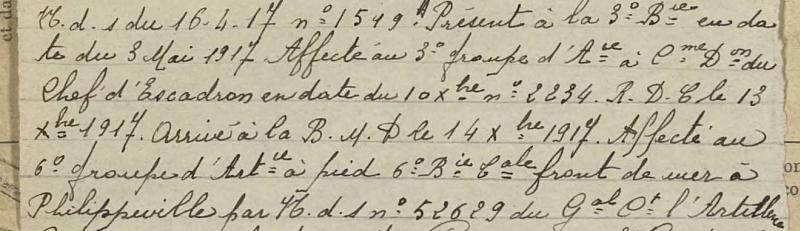 M.d.s du 16.4.17 nº 1549. Présent à la 3º Bie en da
te du 3 Mai 1917 Affecté au 3º groupe d'Aie à Cme Don du
Chef d'Escadron en date du 10 Xbre nº 2234. R. D. C le 13
Xbre 1917. Arrivé à la B. M. D le 14 Xbre 1917. Affecté au
6º groupe d'Artie à pied 6º Bie Cale front de mer à
Philippeville par M.d.s nº 52629 du Gal Ct l'Artillerie